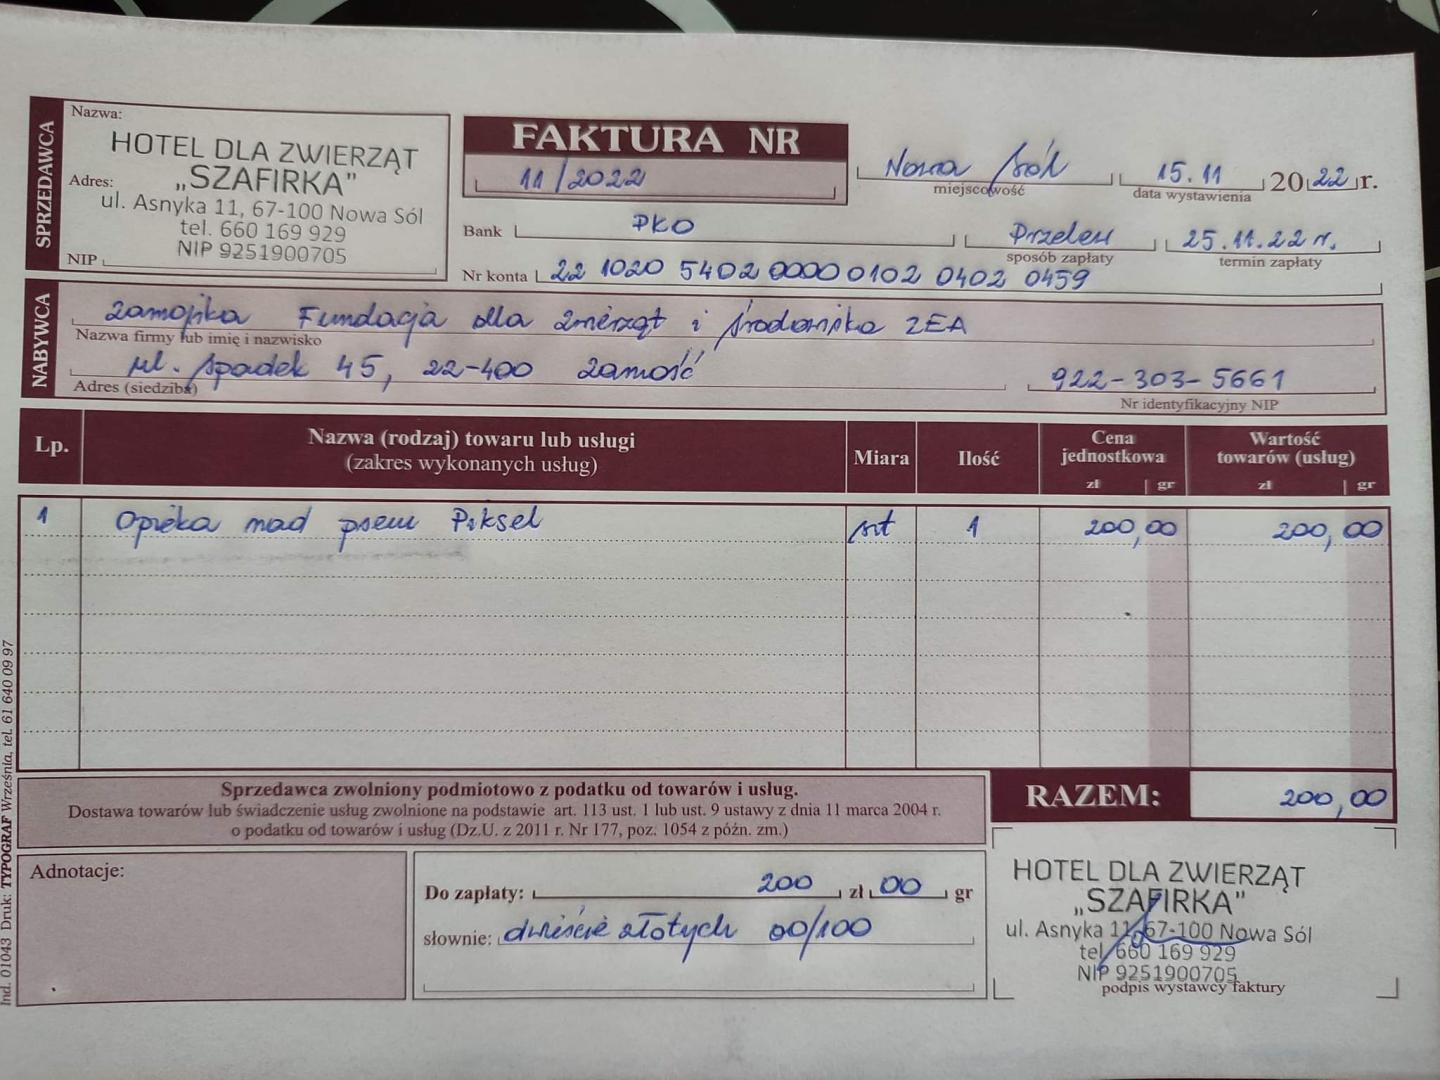 SPRZEDAWCA
Nazwa:
HOTEL DLA ZWIERZĄT
Adres: „SZAFIRKA”
ul. Asnyka 11, 67-100 Nowa Sól
tel. 660 169 929
NIP 9251900705
NIP
FAKTURA NR
11/2022
Nowa Sól
miejscowość
15.11 2022 r.
data wystawienia
Bank PKO
Przelew
sposób zapłaty
25.11.22 r.
termin zapłaty
Nr konta 22 1020 5402 0000 0102 0402 0459
NABYWCA
Zamojska Fundacja dla Zwierząt i Środowiska ZEA
Nazwa firmy lub imię i nazwisko
ul. Spadek 45, 22-400 Zamość
Adres (siedziba)
922-303-5661
Nr identyfikacyjny NIP
Lp. Nazwa (rodzaj) towaru lub usługi (zakres wykonanych usług) Miara Ilość Cena jednostkowa zł gr Wartość towarów (usług) zł gr
1 Opieka nad psem Piksel szt 1 200,00 200,00
Sprzedawca zwolniony podmiotowo z podatku od towarów i usług.
Dostawa towarów lub świadczenie usług zwolnione na podstawie art. 113 ust. 1 lub ust. 9 ustawy z dnia 11 marca 2004 r.
o podatku od towarów i usług (Dz.U. z 2011 r. Nr 177, poz. 1054 z późn. zm.)
RAZEM: 200,00
Adnotacje:
Do zapłaty: 200 zł 00 gr
słownie: dwieście złotych 00/100
HOTEL DLA ZWIERZĄT
„SZAFIRKA”
ul. Asnyka 11, 67-100 Nowa Sól
tel. 660 169 929
NIP 9251900705
podpis wystawcy faktury
Ind. 01043 Druk: TYPOGRAF Września, tel. 61 640 09 97